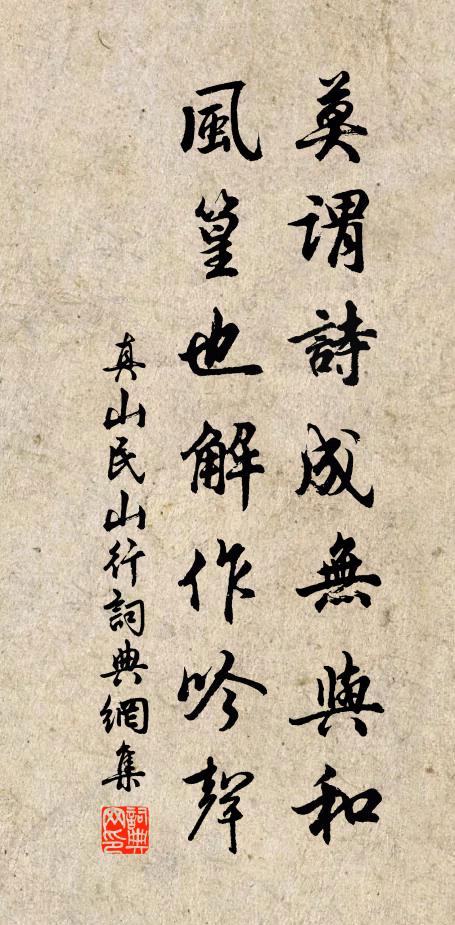 莫謂詩成無與和
風篁也解作吟聲
真山民山行詞典網集
詞典网印